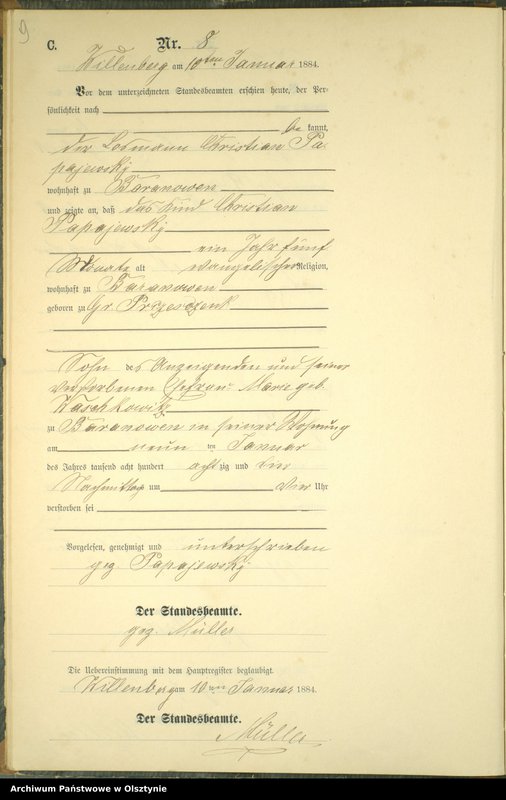 9
C. Nr. 8
Willenberg am 10ten Januar 1884.
Vor dem unterzeichneten Standesbeamten erschien heute, der Per-
sönlichkeit nach
be kannt,
der Losmann Christian Pa-
pajewsky
wohnhaft zu Baranowen
und zeigte an, daß das Kind Christian
Papajewsky
ein Jahr fünf
Monate alt evangelischer Religion,
wohnhaft zu Baranowen
geboren zu Gr. Przesdzenk
Sohn des Anzeigenden und seiner
verstorbenen Ehefrau Marie geb.
Waschkowitz
zu Baranowen in seiner Wohnung
am neun ten Januar
des Jahres tausend acht hundert acht zig und vier
Nachmittag um vier Uhr
verstorben sei
Vorgelesen, genehmigt und unterschrieben
gez Papajewsky
Der Standesbeamte.
gez. Müller
Die Uebereinstimmung mit dem Hauptregister beglaubigt.
Willenberg am 10ten Januar 1884.
Der Standesbeamte.
Müller
Archiwum Państwowe w Olsztynie